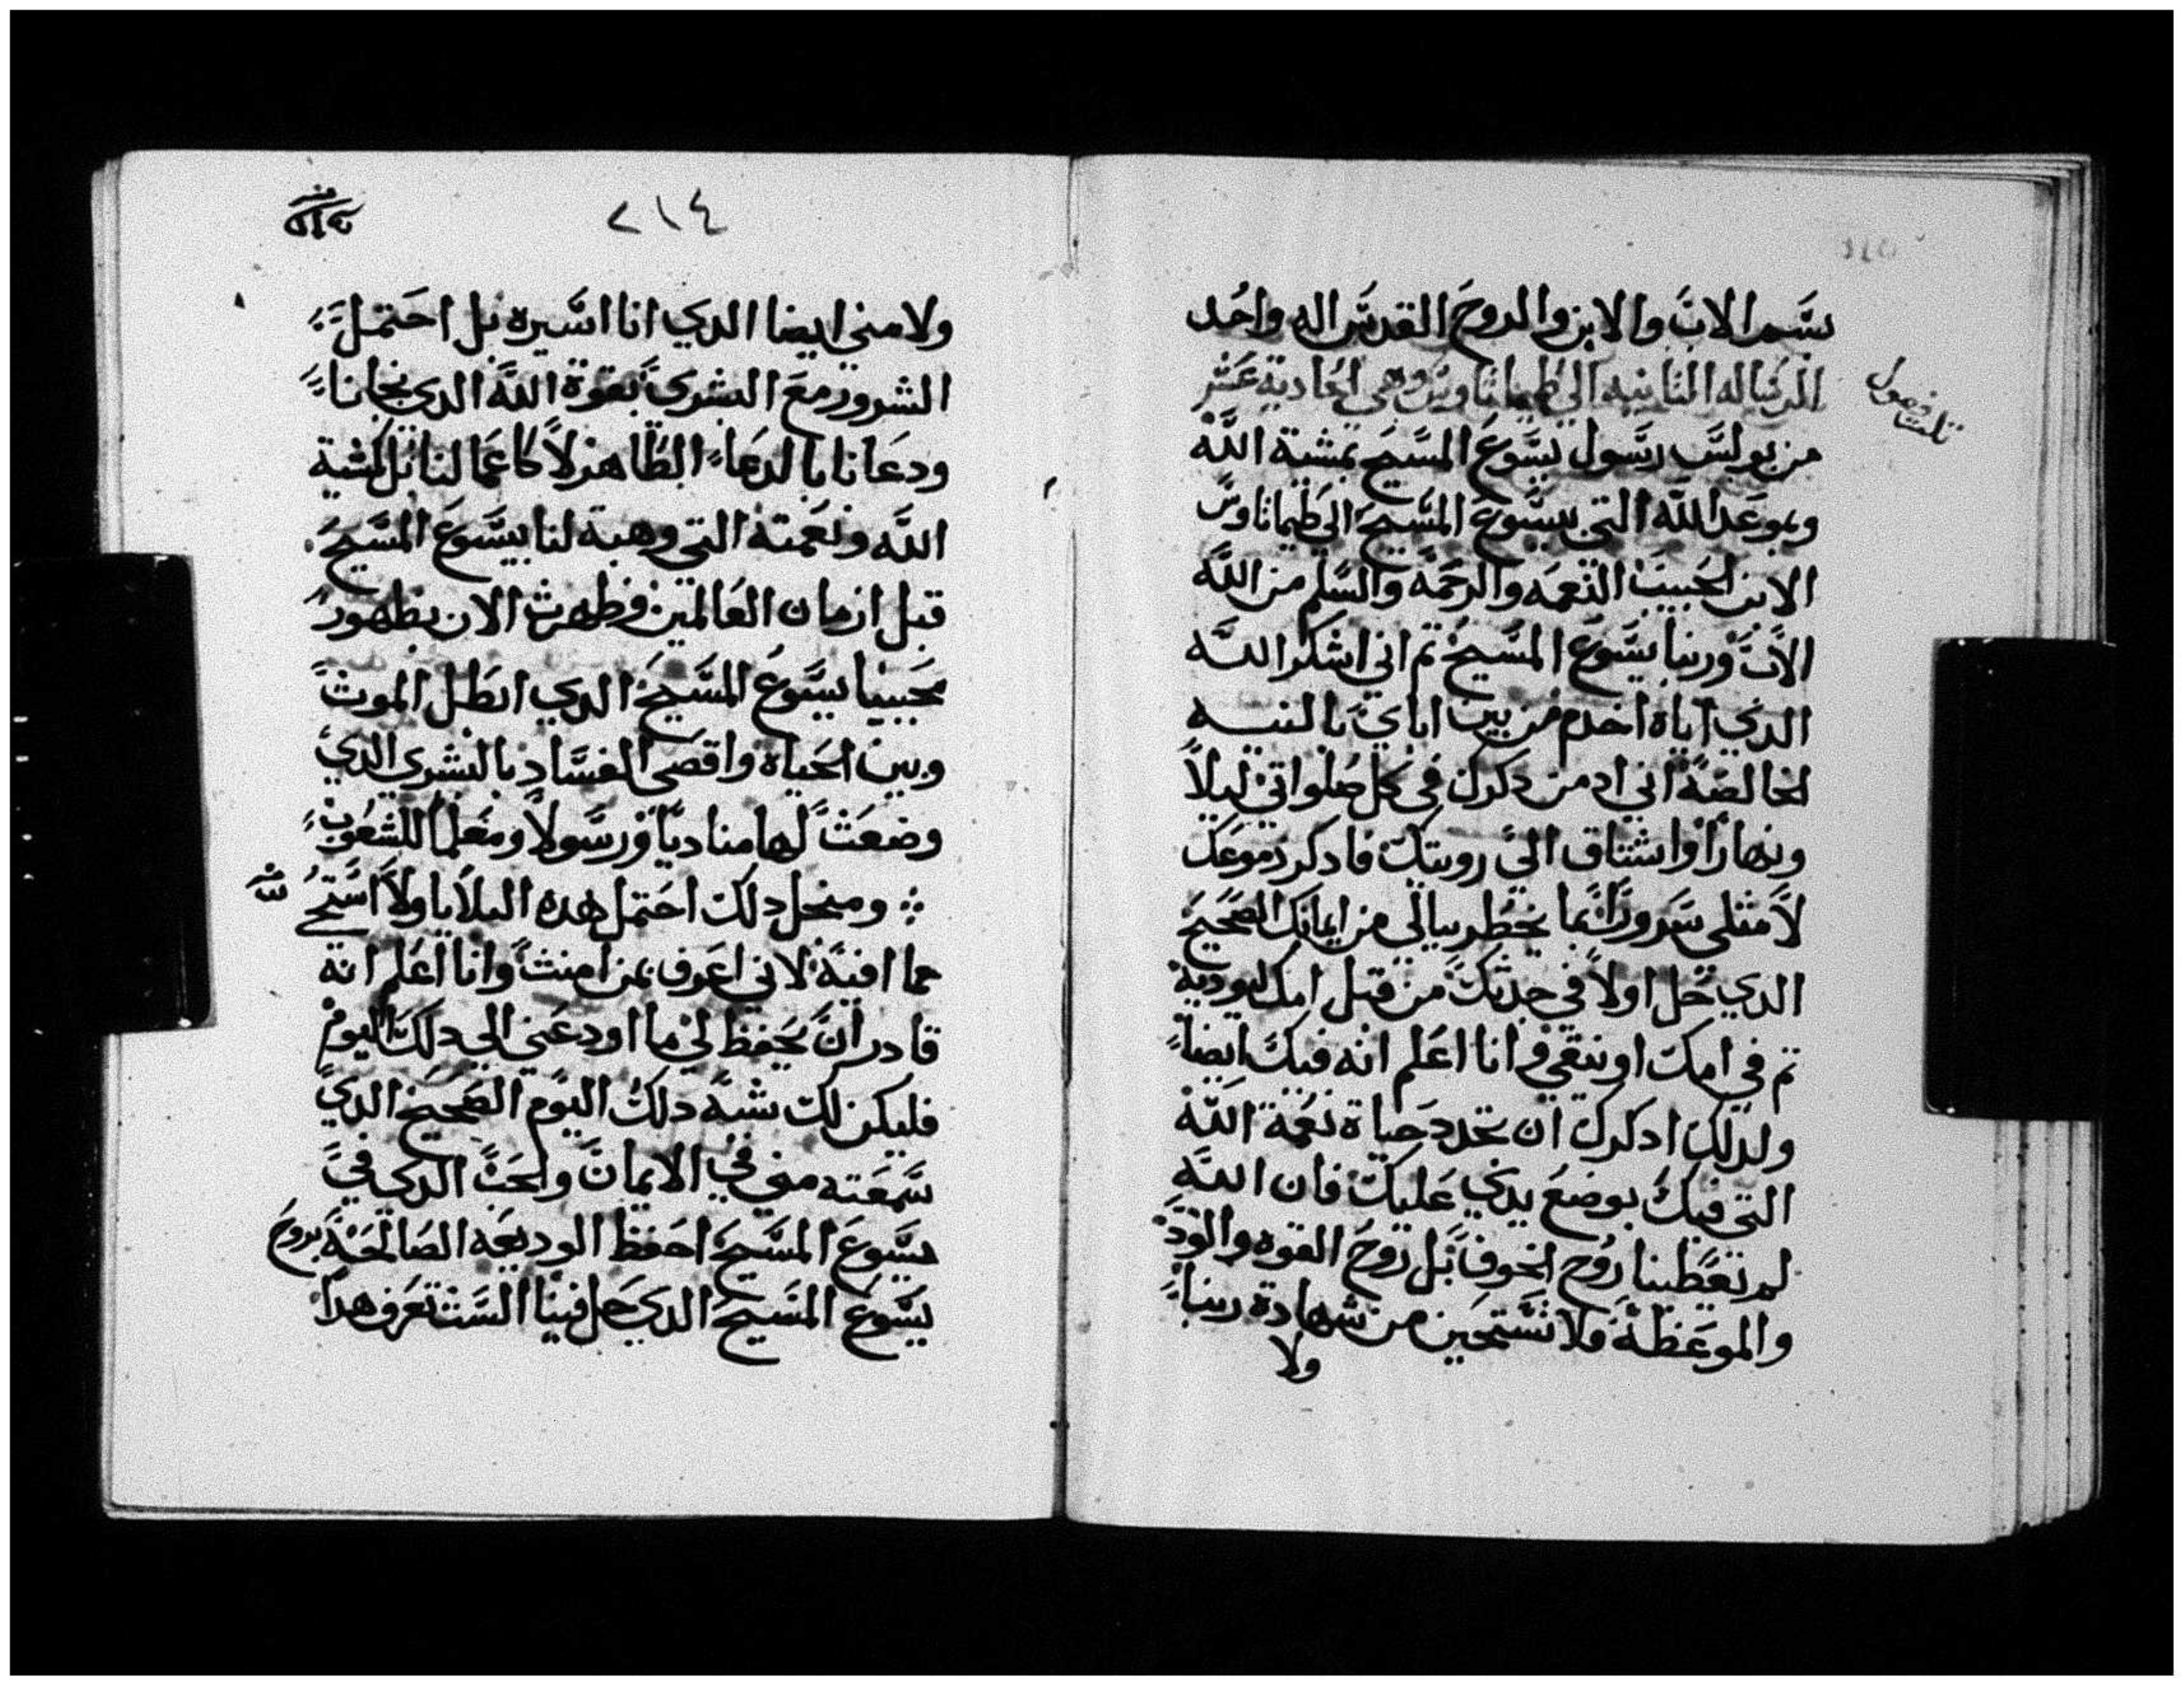 بسم الاب والابن والروح القدس اله واحد
الرساله التانيه الي طيماتاوس وهي الحادية عشر
تلت فصول
من بولس رسول يسوع المسيح بمشية الله
وبوعد الله التي بيسوع المسيح الي طيماتاوس
الابن الحبيب النعمه والرحمه والسلم من الله
الاب وربنا يسوع المسيح تم اني اشكر الله
الدي اياه اخدم من بين اباي بالنيه
الخالصة اني ادمن دكرك في كل صلواتي ليلاً
ونهارًا واشتاق الى رويتك فادكر دموعك
لامتلي سرورًا بما يخطر ببالي من ايمانك الصحيح
الدي حل اولاً في جدتك من قبل امك لوودية
تم في امك اونيقي وانا اعلم انه فيك ايضاً
ولدلك ادكرك ان تجدد حياة نعمة الله
التي فيك بوضع يدي عليك فان الله
لم تعطينا روح الخوف بل روح القوه والود
والموعظة فلا تستحين من شهادة ربنا
ولا
٢١٤
ولا مني ايضا الدي انا اسيره بل احتمل
الشرور مع البشرى بقوة الله الدي نجانا
ودعانا بالدعاء الطاهر لا كاعمالنا بل كمشية
الله ونعمته التي وهبة لنا بيسوع المسيح
قبل ازمان العالمين وظهرت الان بظهور
محبينا يسوع المسيح الدي ابطل الموت
وبين الحياة واقصى الفساد بالبشري الدي
وضعت لها مناديًا ورسولاً ومعلمًا للشعوب
ومنجل دلك احتمل هده البلايا ولا استحي
مما افية لاني اعرف بمن امنت وانا اعلم انه
قادر ان يحفظ لي ما اودعني الي دلك اليوم
فليكن لك شبه دلك اليوم الصحيح الدي
سمعته مني في الايمان والحب الدي في
يسوع المسيح احفظ الوديعه الصالحة بروح
يسوع المسيح الدي حل فينا الست تعرف هدا